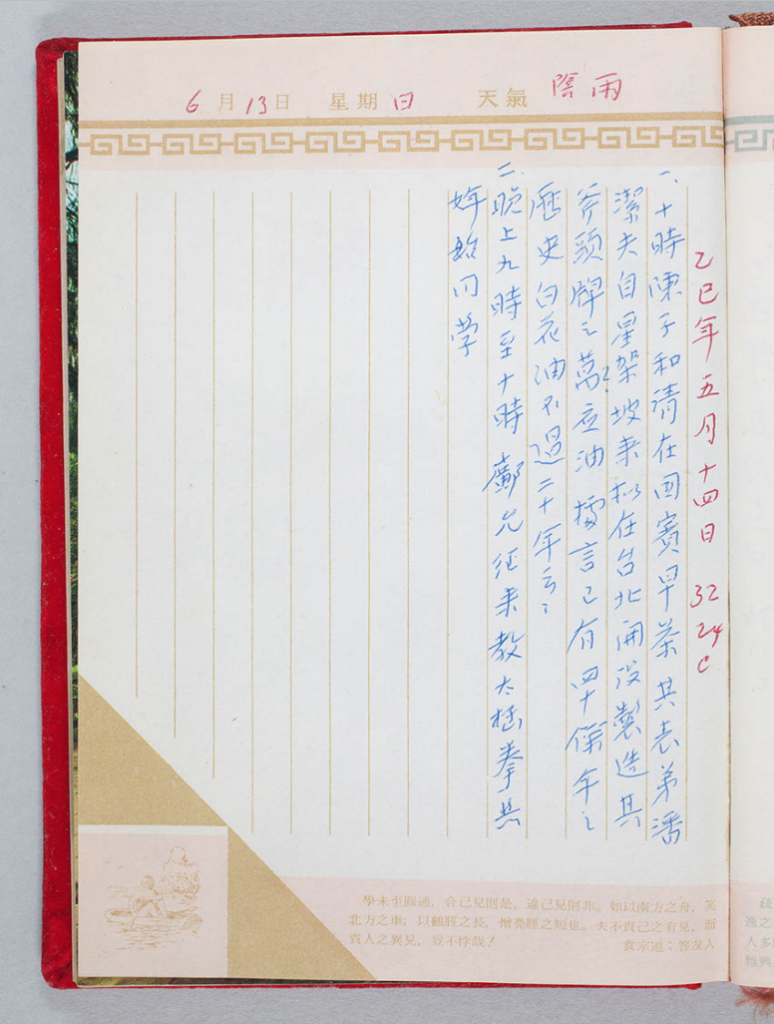 6月13日 星期日 天氣 陰雨
乙巳年五月十四日 32 24C
一、十時陳子和請在国賓早茶其表弟潘
潔夫自星架坡来擬在台北開設製造其
斧頭牌之萬应油 據言已有四十餘年之
歷史白花油不過二十年云云
二、晚上九時至十時 鄺允征来教太極拳共
同学
學未至圓通，合己見則是，違己見則非。如以南方之舟，笑
北方之車；以鶴脛之長，憎鳧脛之短也。夫不責己之有見，而
責人之異見，豈不悖哉！ 袁宗道：答友人